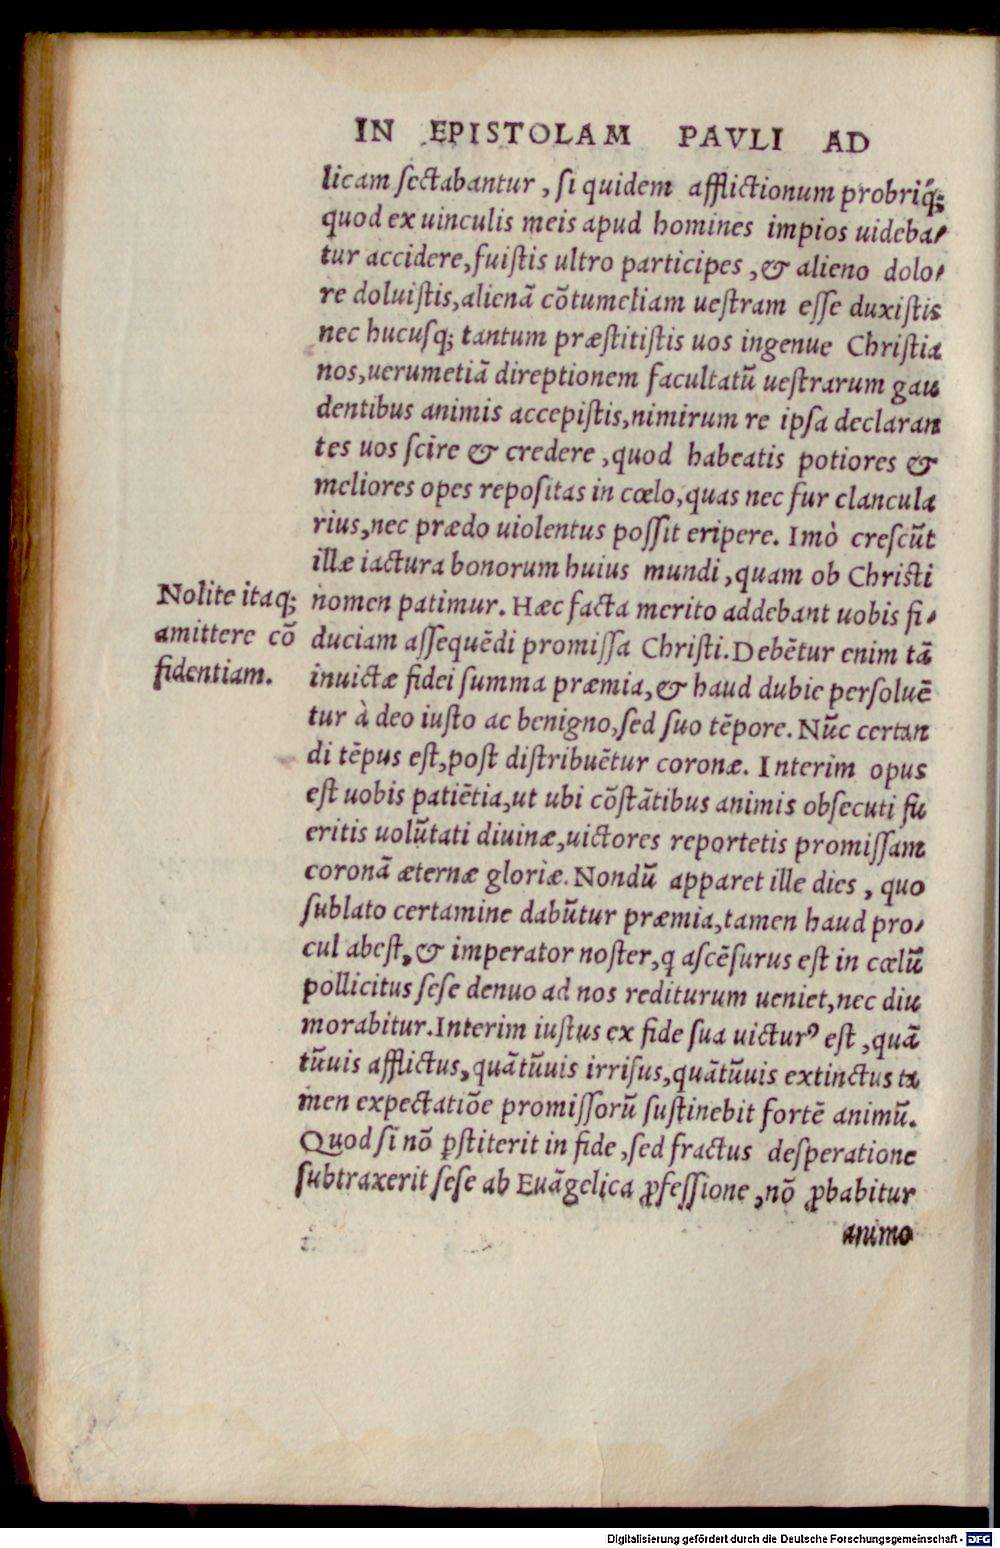 IN EPISTOLAM PAVLI AD
licam sectabantur, si quidem afflictionum probriq́;
quod ex uinculis meis apud homines impios uideba-
tur accidere, fuistis ultro participes, & alieno dolo-
re doluistis, alienā cōtumeliam uestram esse duxistis
nec hucusq; tantum præstitistis uos ingenue Christia
nos, uerumetiā direptionem facultatū uestrarum gau
dentibus animis accepistis, nimirum re ipsa declaran
tes uos scire & credere, quod habeatis potiores &
meliores opes repositas in cœlo, quas nec fur clancula
rius, nec prædo uiolentus possit eripere. Imò crescūt
illæ iactura bonorum huius mundi, quam ob Christi
nomen patimur. Hæc facta merito addebant uobis fi-
duciam assequēdi promissa Christi. Debētur enim tā
inuictæ fidei summa præmia, & haud dubie persoluē
tur à deo iusto ac benigno, sed suo tēpore. Nūc certan
di tēpus est, post distribuētur coronæ. Interim opus
est uobis patiētia, ut ubi cōstātibus animis obsecuti fu
eritis uolūtati diuinæ, uictores reportetis promissam
coronā æternæ gloriæ. Nondū apparet ille dies, quo
sublato certamine dabūtur præmia, tamen haud pro-
cul abest, & imperator noster, q ascēsurus est in cœlū
pollicitus sese denuo ad nos rediturum ueniet, nec diu
morabitur. Interim iustus ex fide sua uicturꝰ est, quā
tūuis afflictus, quātūuis irrisus, quātūuis extinctus ta
men expectatiōe promissorū sustinebit fortē animū.
Quod si nō p̱stiterit in fide, sed fractus desperatione
subtraxerit sese ab Euāgelica ꝓfessione, nō ꝓbabitur
animo
Nolite itaq;
amittere cō
fidentiam.
Digitalisierung gefördert durch die Deutsche Forschungsgemeinschaft - DFG